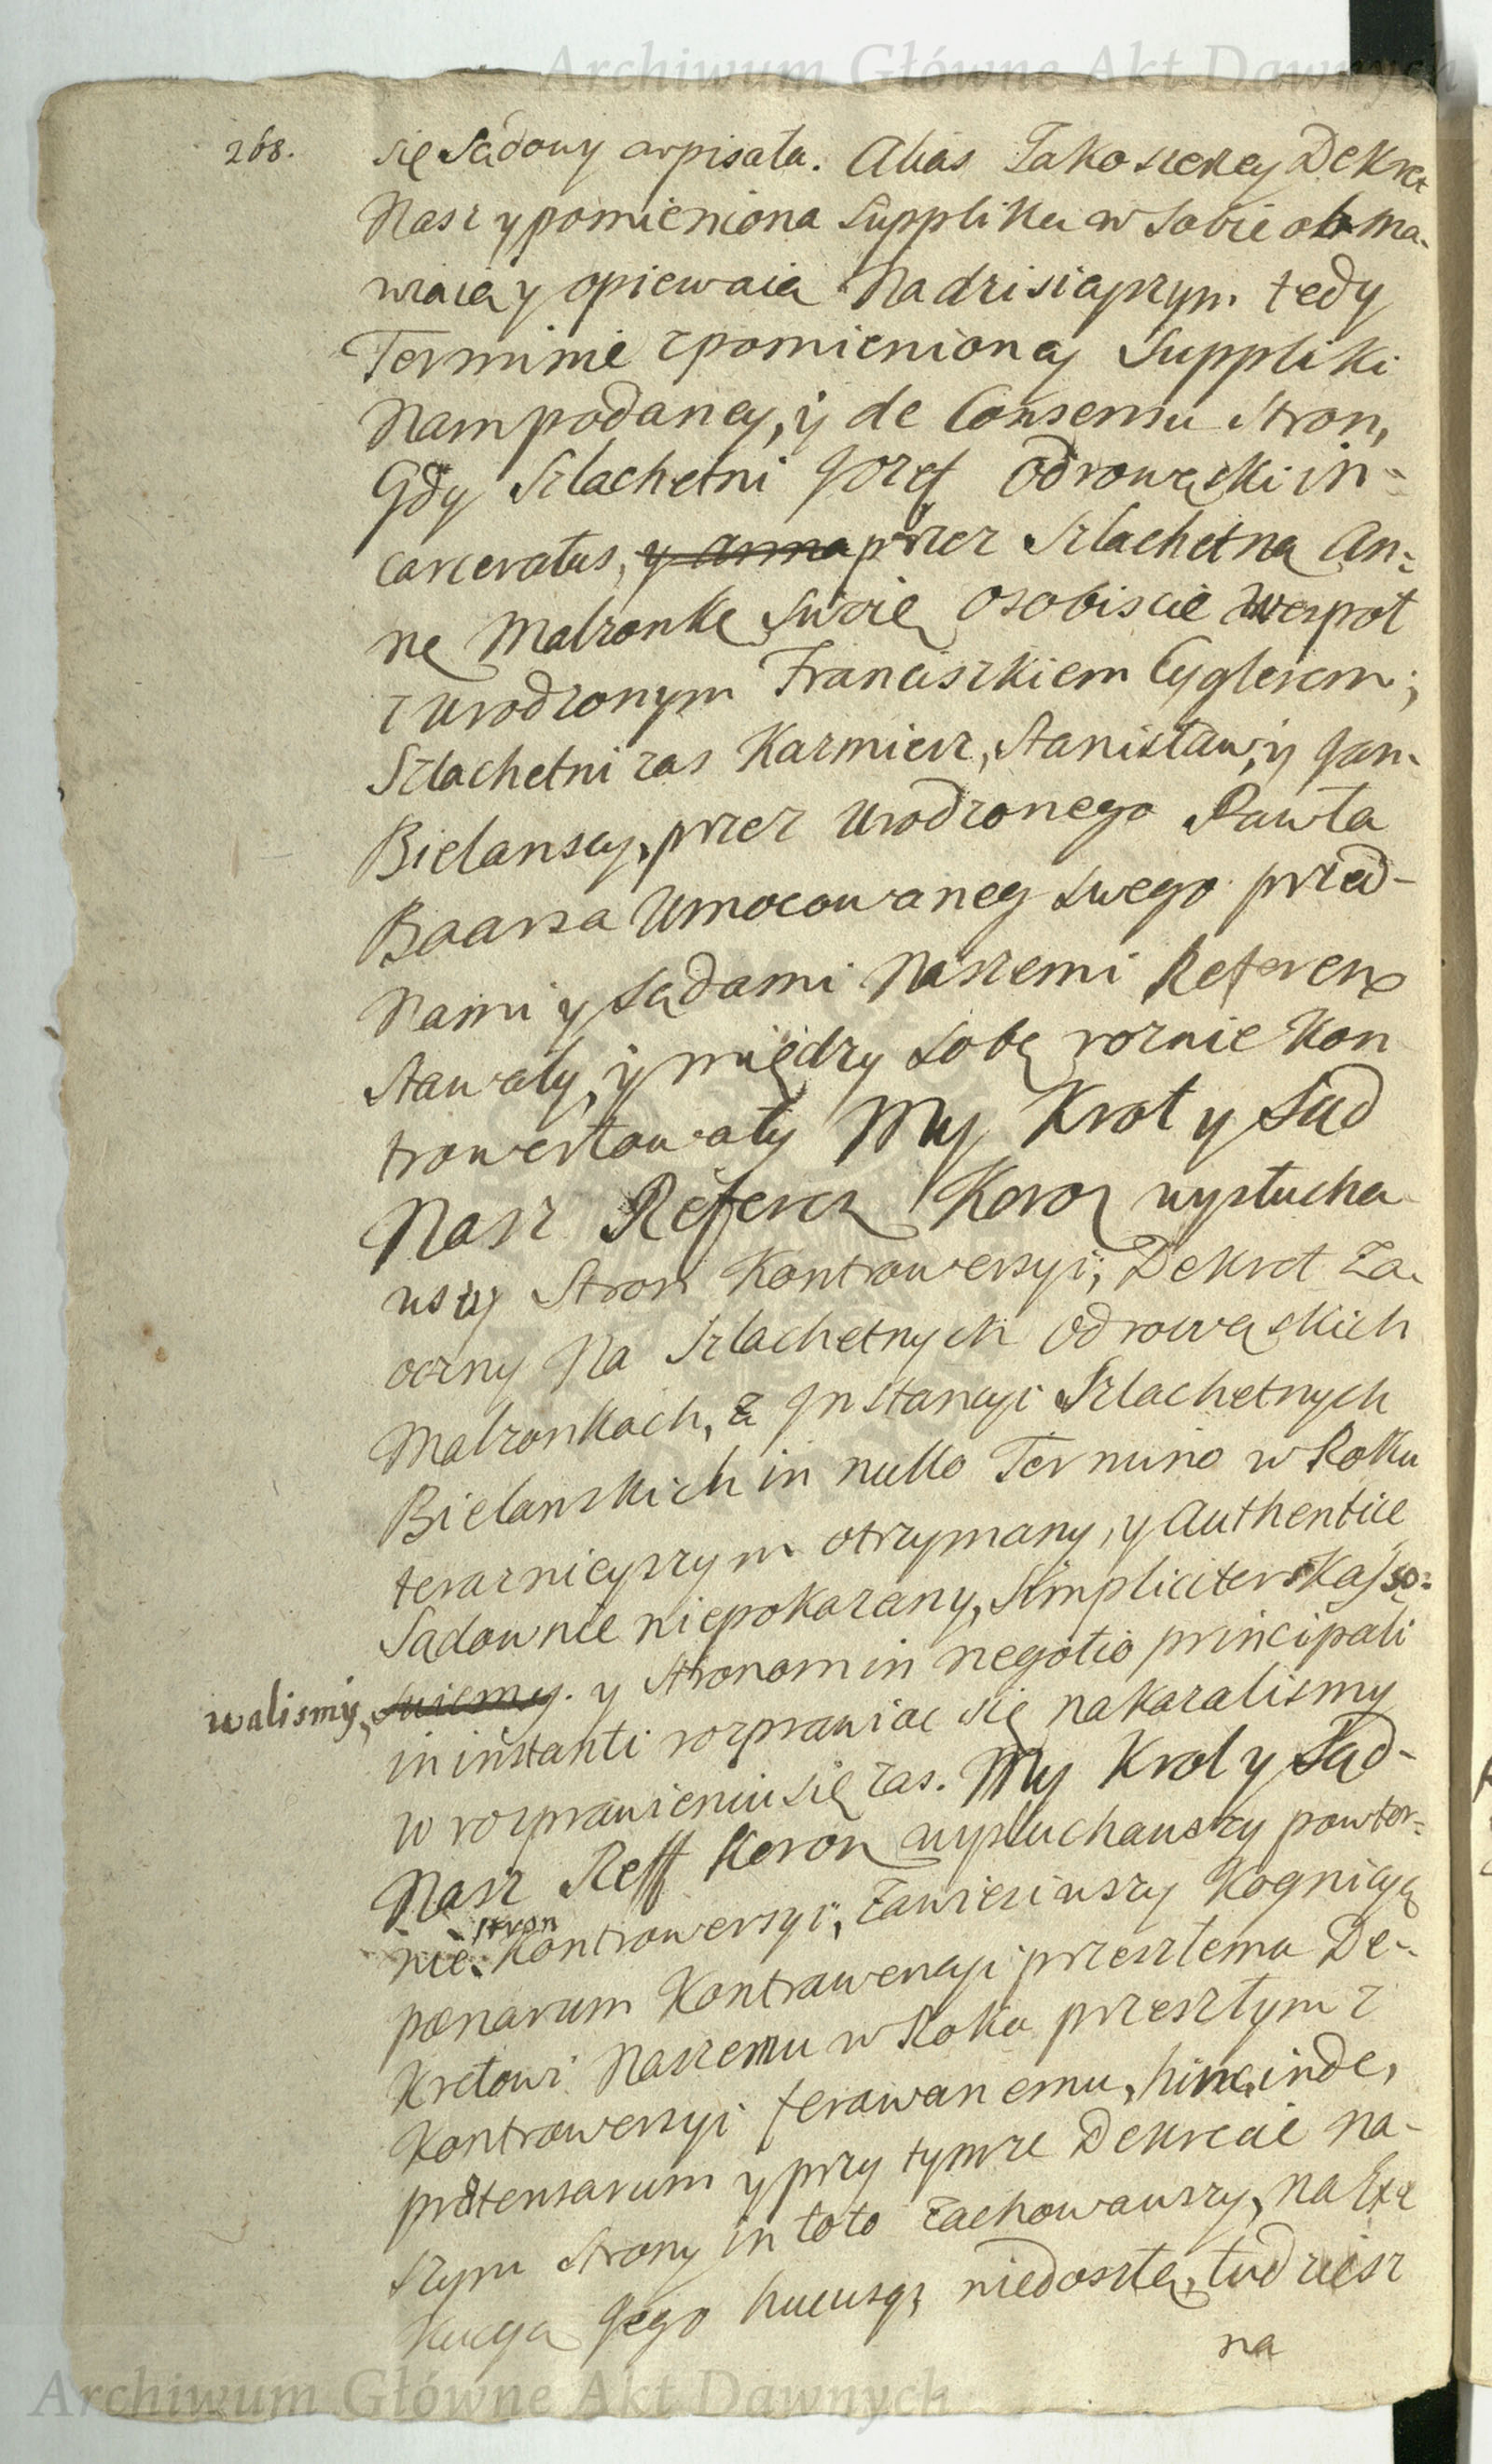 Archiwum Główne Akt Dawnych
268.
się Sądowy wpisała. Alias Jako szerzey Dekret
Nasz y pomieniona Supplika w Sobie obma-
wiaią y opiewaią Na dzisieyszym tedy
Terminie z pomienioney Suppliki
Nam podaney, y de Consensu Stron,
Gdy Szlachetni Jozef Odrowąski in-
carceratus, y Anna przez Szlachetną An-
nę Małzonkę Swoię osobiscie wespoł
z Urodzonym Franciszkiem Cyglerem;
Szlachetni zas Kazmierz, Stanisław, y Jan
Bielanscy, przez Urodzonego Pawła
Baarsa Umocowaneg swego przed-
Nami y Sądami Naszemi Referen
Stawały, y między Sobą roznie Kon
trowertowały My Krol y Sąd
Nasz Referen Koron wysłucha
wszy Stron Kontrowersyi, Dekret Za
oczny Na Szlachetnych Odrowąskich
Małzonkach, z Jnstancyi Szlachetnych
Bielanskich in nullo Termino w Roku
teraznieyszym otrzymany, y Authentice
Sądownie niepokazany, Simpliciter Kasso-
walismy, suiemy. y Stronom in negotio principali
in instanti rozprawiac się nakazalismy
w rozprawieniu się zas. My Krol y Sąd-
Nasz Reff Koron wysłuchawszy powtor-
nie Stron Kontrowersyi, Zawiesiwszy Kognicyą
pœnarum Kontrawencyi przeszłemu De-
kretowi Naszemu w Roku przeszłym z
Kontrowersyi ferowanemu, hinc inde,
prætensarum y przy tymze Dekrecie Na-
szym Strony in toto Zachowawszy, na Exe
kucyą Jego hucusq; niedoszłą, tudziesz
na
Archiwum Główne Akt Dawnych